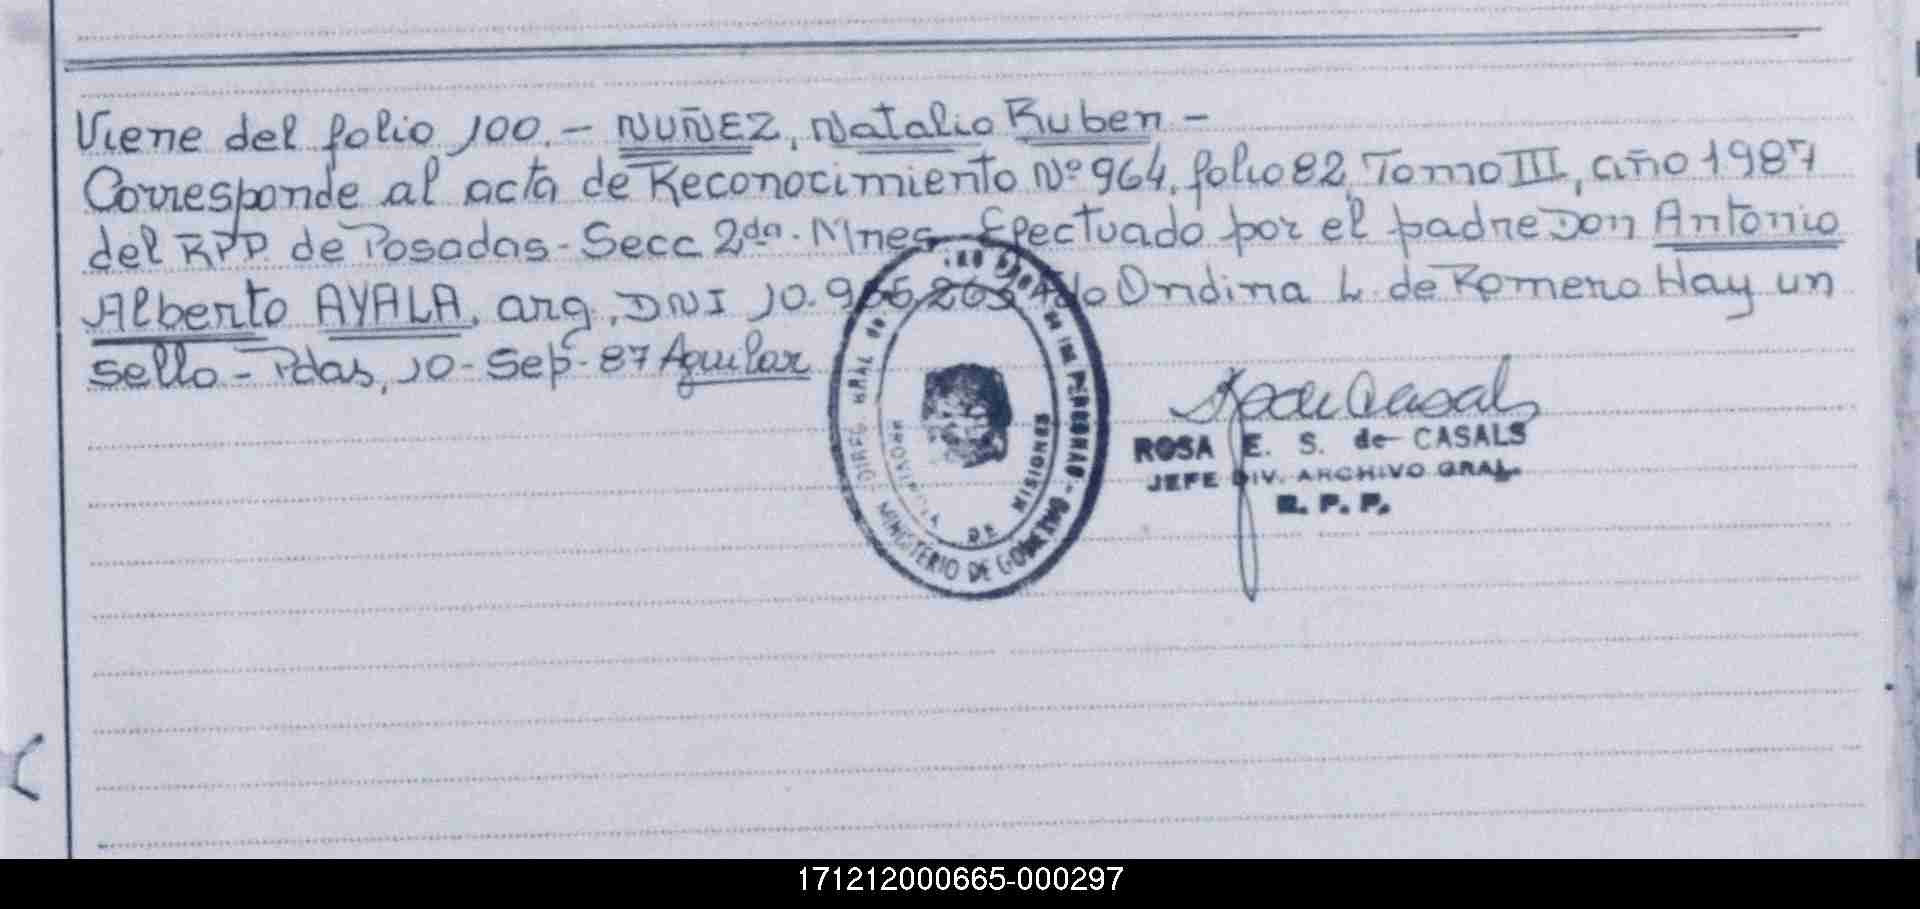 Viene del folio 100. - NUÑEZ, Natalio Ruben -
Corresponde al acta de Reconocimiento Nº 964, folio 82, Tomo III, año 1987
del RPP de Posadas - Secc 2da. Mnes. Efectuado por el padre Don Antonio
Alberto AYALA, arg, DNI 10. Fdo Ondina L. de Romero Hay un
sello - Pdas, 10 - Sep - 87 Aguilar
MINISTERIO DE GOBIERNO
PROVINCIA DE MISIONES
ROSA E. S. de CASALS
JEFE DIV. ARCHIVO GRAL.
R. P. P.
171212000665-000297